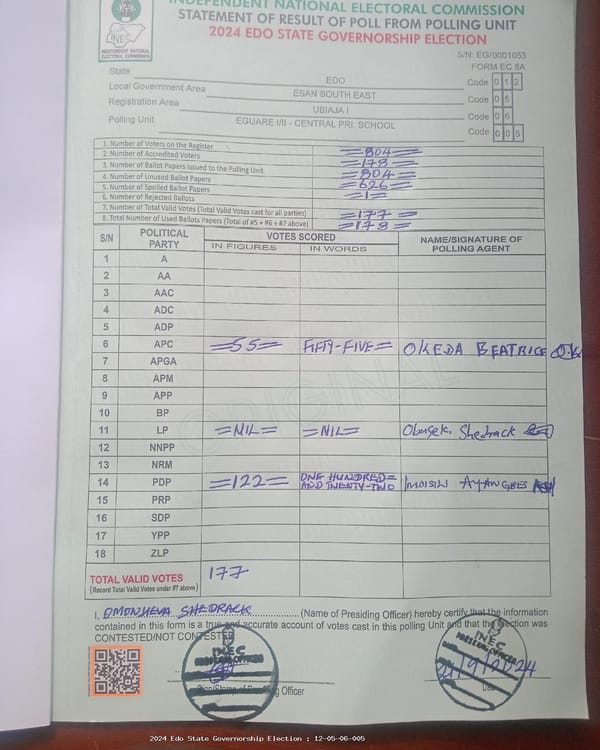 INDEPENDENT NATIONAL ELECTORAL COMMISSION
STATEMENT OF RESULT OF POLL FROM POLLING UNIT
2024 EDO STATE GOVERNORSHIP ELECTION
INEC
INDEPENDENT NATIONAL ELECTORAL COMMISSION
S/N: EG/0001053
FORM EC 8A
State EDO Code 0 1 2
Local Government Area ESAN SOUTH EAST Code 0 5
Registration Area UBIAJA I Code 0 6
Polling Unit EGUARE I/II - CENTRAL PRI. SCHOOL Code 0 0 5
1. Number of Voters on the Register =804=
2. Number of Accredited Voters =178=
3. Number of Ballot Papers Issued to the Polling Unit =804=
4. Number of Unused Ballot Papers =626=
5. Number of Spoiled Ballot Papers
6. Number of Rejected Ballots =1=
7. Number of Total Valid Votes (Total Valid Votes cast for all parties) =177=
8. Total Number of Used Ballots Papers (Total of #5 + #6 + #7 above) =178=
S/N POLITICAL PARTY VOTES SCORED NAME/SIGNATURE OF POLLING AGENT
IN FIGURES IN WORDS
1 A
2 AA
3 AAC
4 ADC
5 ADP
6 APC =55= FIFTY-FIVE= OKEDA BEATRICE
7 APGA
8 APM
9 APP
10 BP
11 LP =NIL= =NIL= Obaseki Shedrack
12 NNPP
13 NRM
14 PDP =122= ONE HUNDRED= AND TWENTY-TWO
15 PRP
16 SDP
17 YPP
18 ZLP
TOTAL VALID VOTES 177
(Record Total Valid Votes under #7 above)
I, OMONHEVA SHEDRACK (Name of Presiding Officer) hereby certify that the information
contained in this form is a true and accurate account of votes cast in this polling Unit and that the Election was
CONTESTED/NOT CONTESTED
INEC
PRESIDING OFFICER
INEC
PRESIDING OFFICER
21/9/2024
Sign/Stamp of Presiding Officer Date
ORIGINAL
2024 Edo State Governorship Election : 12-05-06-005